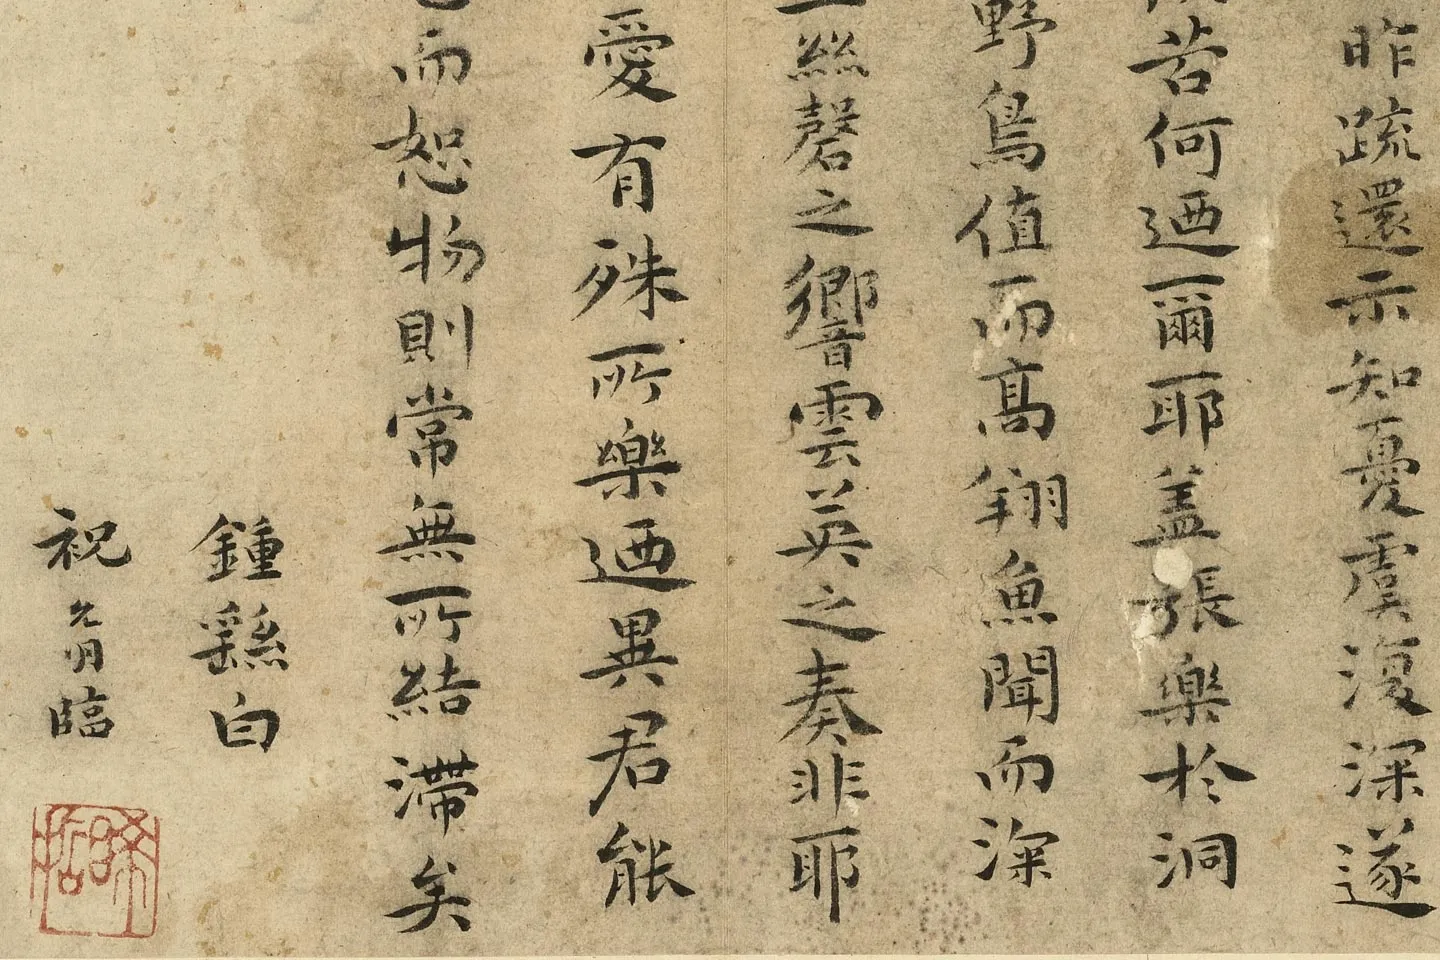 昨疏還示知憂虞復深遂
苦何迺爾耶蓋張樂於洞
野鳥值而高翔魚聞而深
絲磬之響雲英之奏非耶
愛有殊所樂迺異君能
而恕物則常無所結滯矣
鍾繇白
祝允明臨